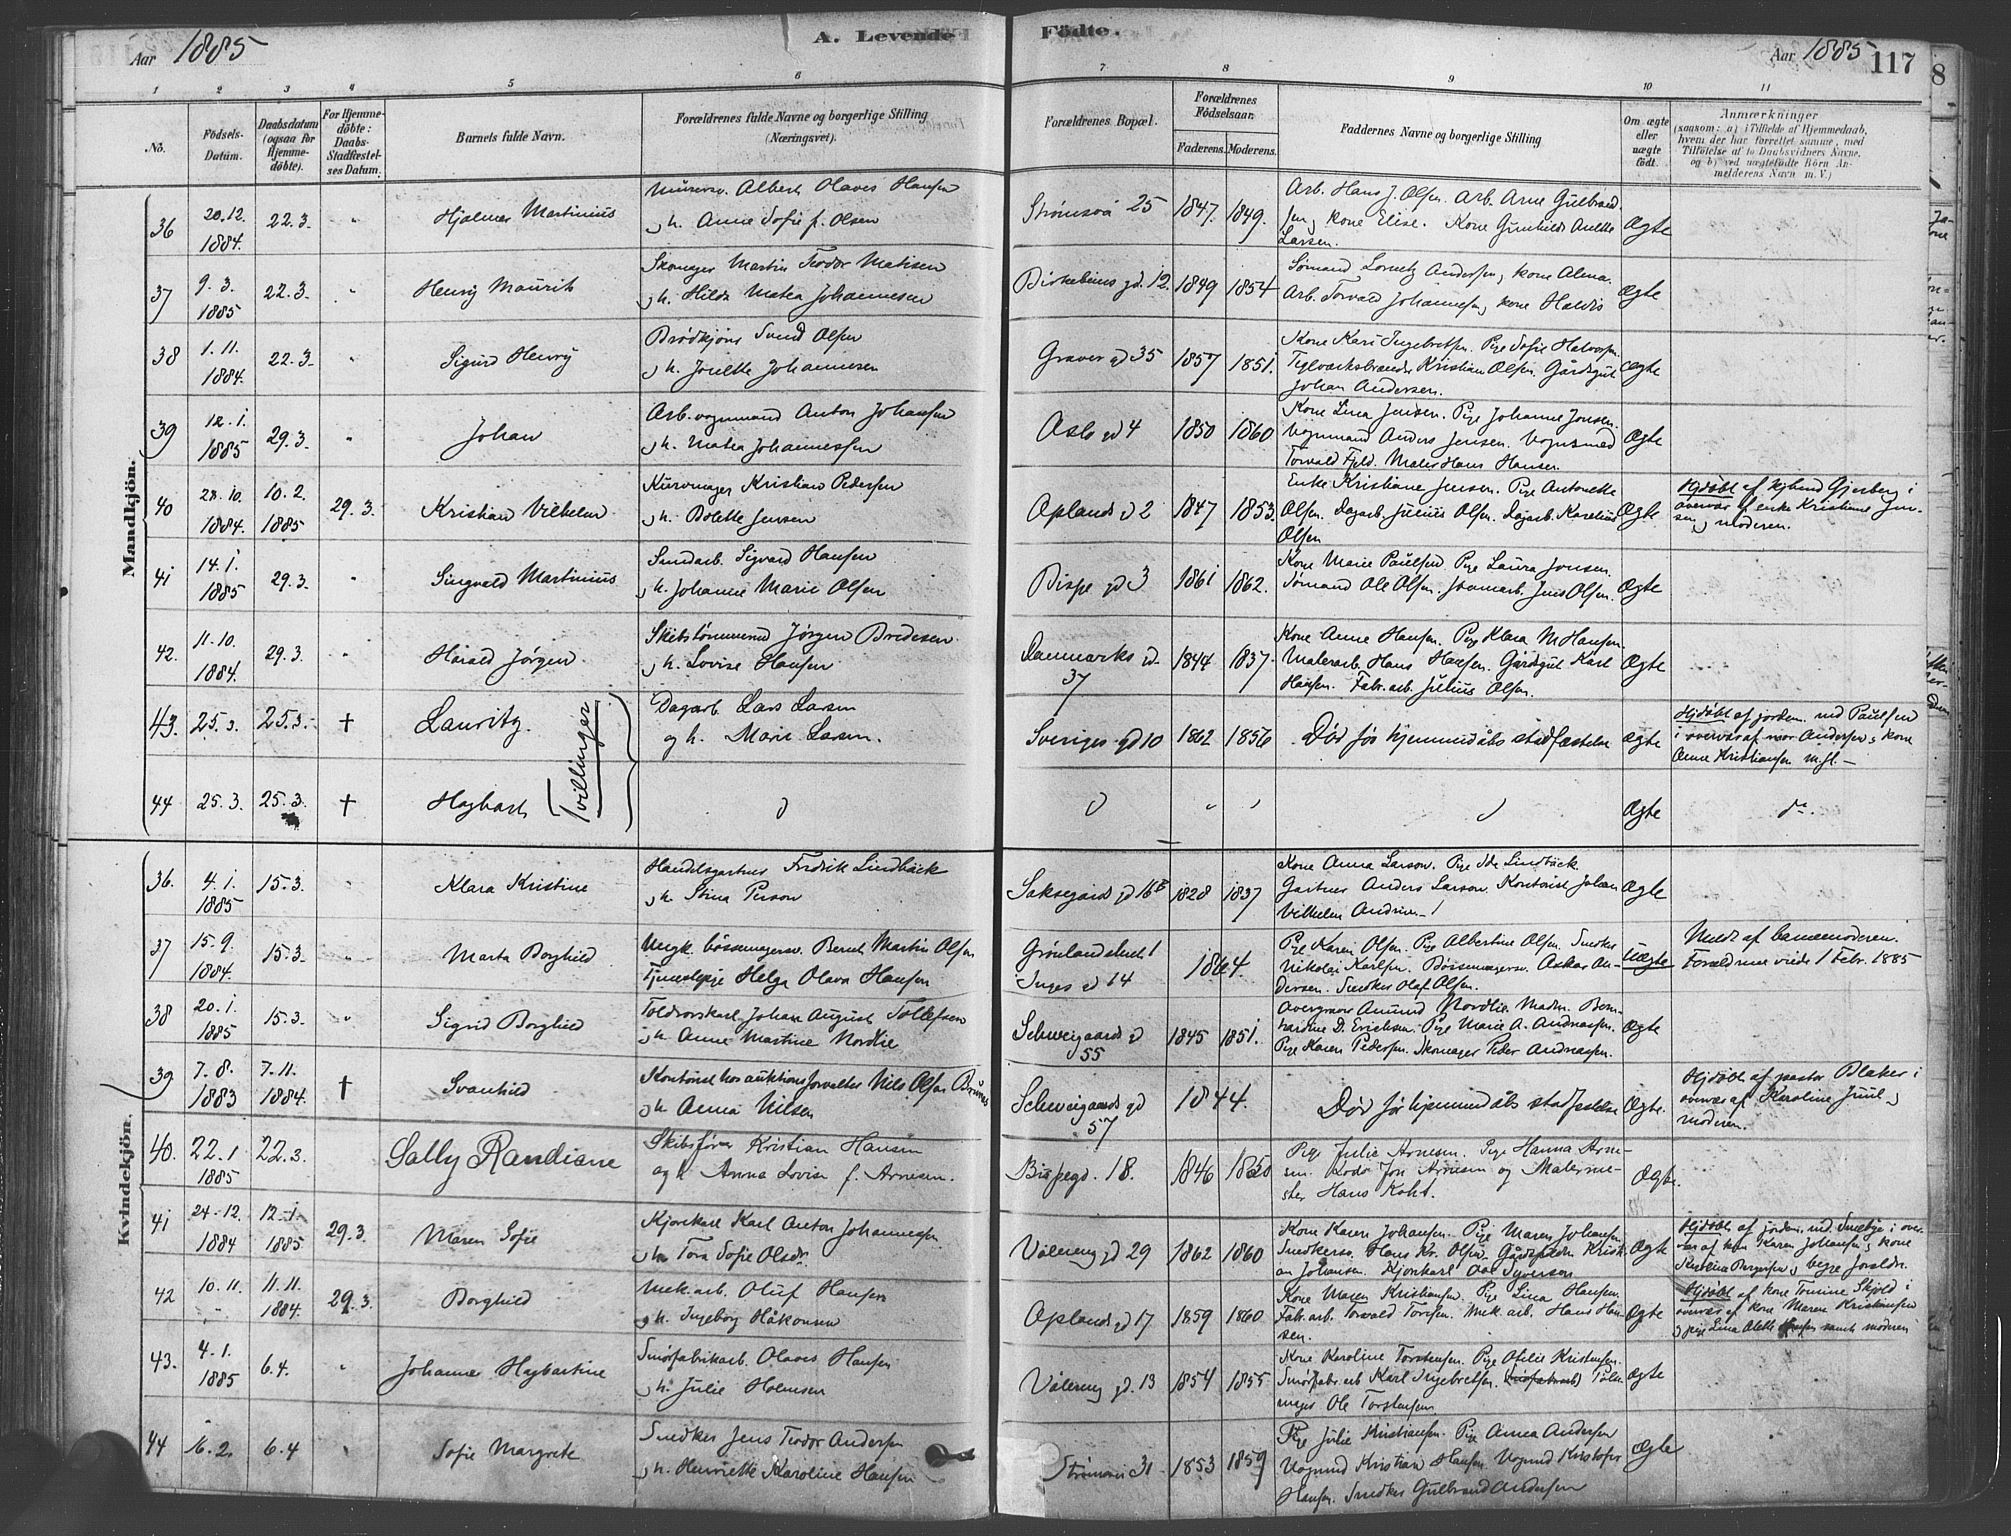 A. Levende Födte.
Aar 1885
Aar 1885 117
1 2 3 4 5 6 7 8 9 10 11
No.
Födsels-Datum.
Daabsdatum (ogsaa for Hjemme-döbte).
For Hjemme-döbte: Daabs-Stadfæstel-ses Datum.
Barnets fulde Navn.
Forældrenes fulde Navne og borgerlige Stilling (Næringsvei).
Forældrenes Bopæl.
Forældrenes Födselsaar.
Faderens. Moderens.
Faddernes Navne og borgerlige Stilling
Om ægte eller uægte födt.
Anmærkninger
(saasom: a) i Tilfælde af Hjemmedaab, hvem der har forrettet samme, med Tilföielse af to Daabsvidners Navne, og b) ved uægtefödte Börn An-melderens Navn m. V.)
Mandkjön.
36 20.12. 1884. 22.3. " Hjalmar Martinius
Murersv. Albert Olaves Hansen
h. Anne Sofie f. Olsen
25 1847. 1849.
Arb. Hans J. Olsen. Arb. Arne Gulbrand-
sen, kone Elise. Kone Gunhild Anette
Larsen.
Ægte
37 9.3. 1885 22.3. " Henry Maurits
Skomager Martin Teodor Matisen
h. Hilda Matea Johannesen
Birkebeins gd. 12 1849 1854
Sømand Andersen, kone Alma.
Arb. Torvald Johannesen, kone Haldis
Ægte
38 1.11. 1884. 22.3. " Sigurd Henry
Svend Olsen
h. Johannesen
Graver gd 35 1857 1851.
Kone Kari Ingebretsen. Pige Sofie Halvorsen.
Teglværksbrænder Kristian Olsen. Gårdsgut
Johan Andersen.
Ægte
39 12.1. 1885 29.3. " Johan
Arb. vognmand Anton Johansen
h. Matea Johannessen
Oslo gd 4 1850 1860
Kone Lina Jensen. Pige Johanne Jonsen.
Vognmand Anders Jensen. Vognsmed
Torvald Fjeld. Maler Hans Hansen
Ægte
40 28.10. 1884. 10.2. 1885 29.3. Kristian Vilhelm
Kurvmager Kristian Pedersen
h. Bolette Jensen
Oplands gd 2 1847 1853.
Enke Kristiane Jensen. Pige Antonette
Olsen. Dagarb. Julius Olsen. Dagarb. Karelius
Olsen
Ægte
Hjdøbt af Gjerberg i
overvær af enke Kristiane Jen-
sen, moderen.
41 14.1. 1885 29.3. " Singvald Martinius
Sigvard Hansen
h. Johanne Marie Olsen
Bispe gd 3 1861 1862.
Kone Marie Paulsen. Pige Laura Jonsen.
Sømand Ole Olsen. Jens Olsen.
Ægte
42. 11.10. 1884. 29.3. " Harald Jørgen
Skibstømmermd Jørgen Bredesen
h. Lovise Hansen
Danmarks gd. 37 1844 1837.
Kone Anne Hansen. Pige Klara M. Hansen
Malerarb. Hans Hansen. Gårdsgut Karl
Hansen. Fabr. arb. Julius Olsen.
Ægte
43. 25.3. 25.3. † Lauritz.
Tvillinger
Dagarb. Lars Larsen
og h. Marie Larsen.
Sveriges gd 10 1862 1856
Død før hjemmedåbs stadfæstelse
ægte
Hjdøbt af jordem. md Paulsen
i overvær af mor Andersen, kone
Anne Kristiansen m. fl. —
44 25.3. 25.3. † Hagbart
" " "
Ægte
Kvindekjön.
36. 4.1. 1885 15.3. " Klara Kristine
Handelsgartner Fredrik Lindbäck
h. Stina Person
Saksegårds gd 16B 1828 1837
Kone Anna Larson. Pige Ida Lindbäck
Gartner Anders Larson. Kontorist Johan
Vilhelm
Ægte
37 15.9. 1884. 15.3. " Marta Borghild
Ungk. bøssemagersv. Bernt Martin Olsen
Tjenestepige Helga Olava Hansen
Grønlandsleret 1
Inges gd 14
1864.
Pige Karen Olsen. Pige Albertine Olsen. Snedker
Nikolai Karlsen. Bøssemagersv. Oskar An-
dersen. Snedker Olaf Olsen.
Uægte
Meldt af barnemoderen.
Forældrene viede 1 Febr. 1885
38 20.1. 1885 15.3. " Sigrid Borghild
Johan August Tollefsen
h. Anne Martine Nordlie
Schweigaards gd 55 1845 1851.
Amund Nordlie. Madm. Bern-
hardine D. Erichsen. Pige Marie A. Andreassen.
Pige Karen Pedersen. Skomager Peder Andreassen.
Ægte
39 7.8. 1883 7.11. 1884. † Svanhild
Kontorist hos auktionsforvalter Nils Olsen
h. Anna Nilsen
Schweigaards gd 57 1844.
Død før hjemmedåbs stadfæstelse
Ægte.
Hjdøbt af pastor Blaker i
overvær af Karoline Juul,
moderen.
40. 22.1 1885 22.3. Sally Randiane
Skibsfører Kristian Hansen
og h. Anna Lovise f. Arnesen.
Bispegd. 18. 1846 1850
Pige Julie Arnesen. Pige Hanna Arne-
sen. Lods Jon Arnesen og Malerme-
ster Hans Koht.
Ægte.
41 24.12. 1884 12.1. 1885 29.3. Maren Sofie
Kjørekarl Karl Anton Johannesen
h. Tora Sofie Olsdr.
Vålereng gd 29 1862 1860
Kone Karen Johansen. Pige Maren Johansen
Snedkersv. Hans Kr. Olsen. Kristi-
an Johansen. Kjørekarl Syversen
Ægte
Hjdøbt af jordem. md. i over-
vær af kone Karen Johansen, kone
Karoline begge foreldr.
42 10.11. " 11.11. 1884. 29.3. Borghild
Mek. arb. Oluf Hansen
h. Ingeborg Håkonsen
Oplands gd 17 1859 1860
Kone Maren Kristiansen. Pige Lina Hansen.
Fabr. arb. Torvald Torsen. Mek. arb. Hans Han-
sen.
Ægte
Hjdøbt af kone Tomine Skjold i
overvær af kone Maren Kristiansen
pige Lina Alette samt moderen
43. 4.1. 1885 6.4. " Johanne Hagbartine
Smørfabrikarb. Olaves Hansen
h. Julie Holmsen
Vålereng gd. 13 1854 1855
Kone Karoline Torstensen. Pige Otilie Kristensen.
Smørfabr. arb. Karl Ingebretsen.
mager Ole Torstensen
Ægte
44 6.4 " Sofie Margrete
Snedker Jens Teodor Andersen
h. Henriette Karoline Hansen
31 1853 1859
Pige Julie Kristiansen. Pige Anna Andersen
Vognmd Kristian Hansen. Vognmd Kristofer
Hansen. Snedker Gulbrand Andersen
Ægte